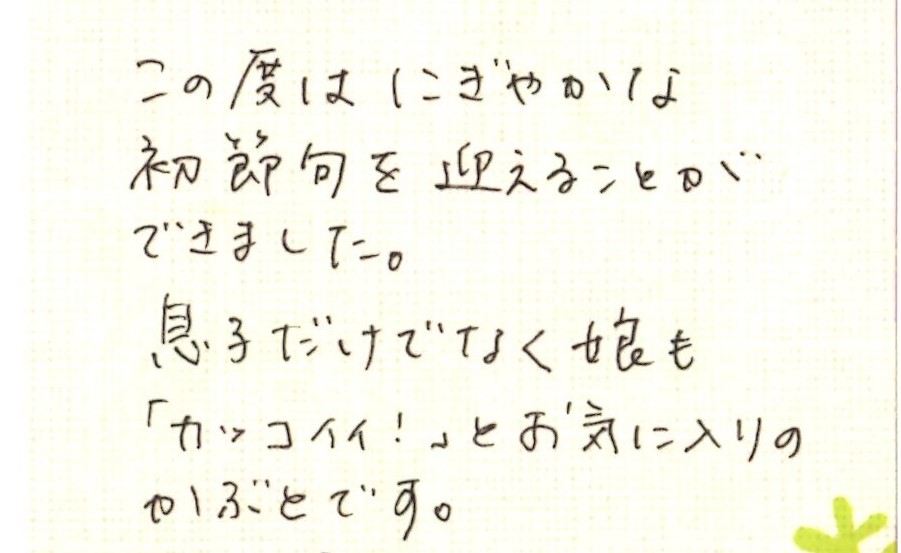 この度は にぎやかな
初節句を 迎えることが
できました。
息子だけでなく娘も
「カッコイイ！」とお気に入りの
かぶとです。